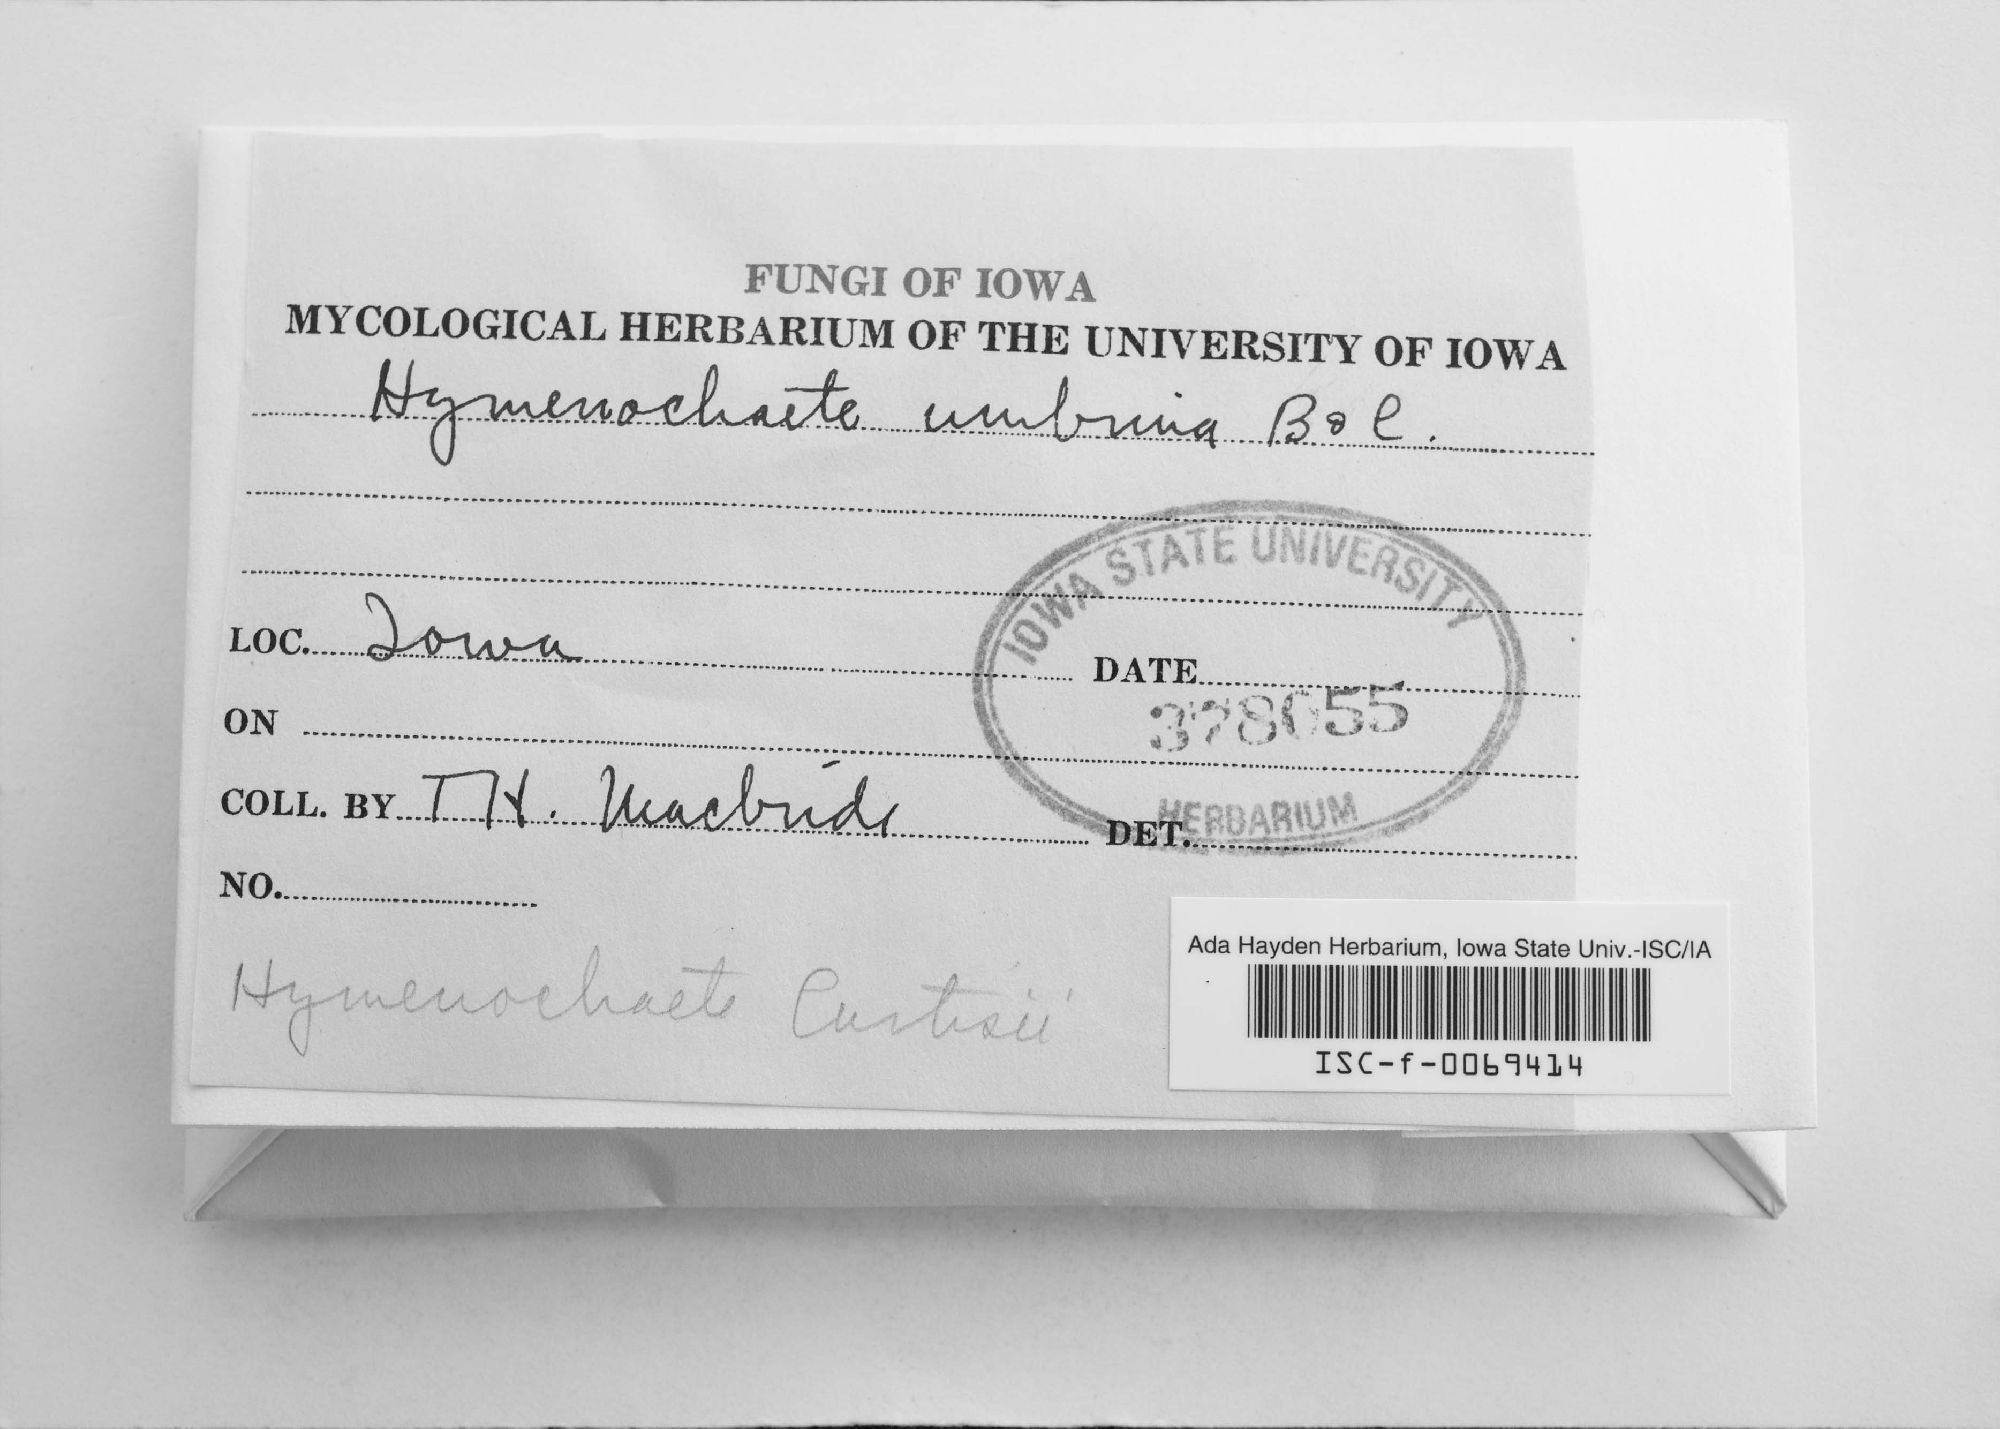 FUNGI OF IOWA
MYCOLOGICAL HERBARIUM OF THE UNIVERSITY OF IOWA
Hymenochaete umbrina B & C.
IOWA STATE UNIVERSITY
LOC. Iowa DATE
378655
ON
COLL. BY T H. Macbride
HERBARIUM
DET.
NO.
Hymenochaete Curtisii
Ada Hayden Herbarium, Iowa State Univ.-ISC/IA
ISC-f-0069414